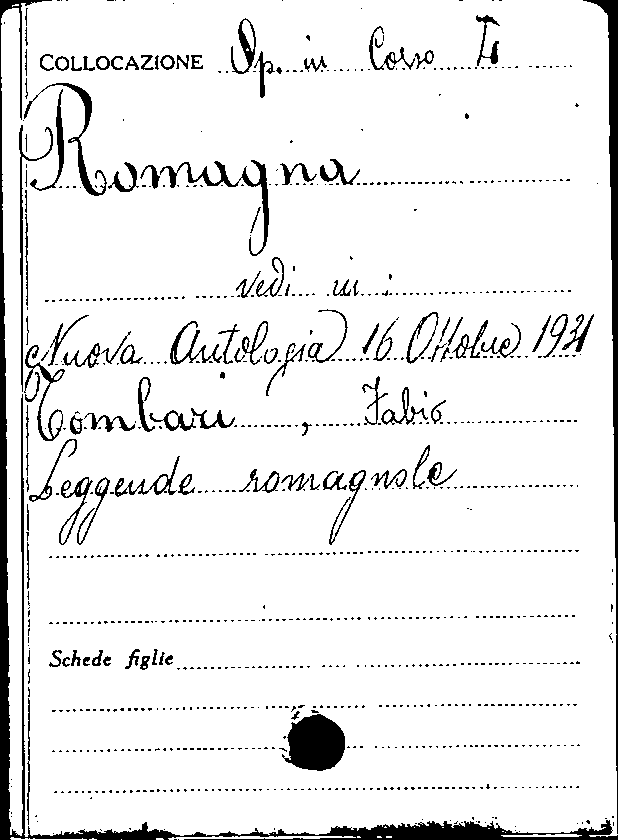 COLLOCAZIONE Op. in Corso
Romagna
vedi in :
Nuova Antologia 16 Ottobre 1931
Tombari , Fabio
Leggende romagnole
Schede figlie